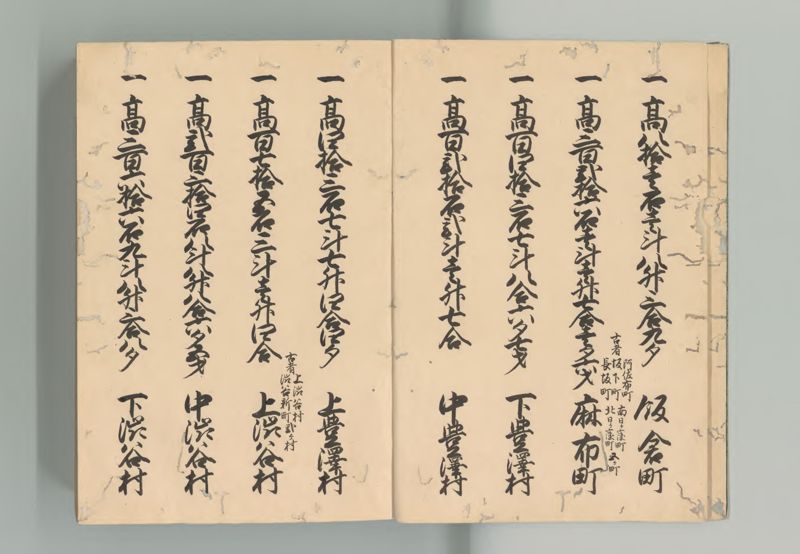 一 高八拾壱石壱斗八升三合九夕 飯倉町
一 高三百弐拾六石七斗壱升七合 麻布町
古者 阿佐布町 坂下町 長坂町 南日ヶ窪町 北日ヶ窪町 五ヶ町
一 高百四拾三石七斗八合六夕七才 下豊澤村
一 高百弐拾石弐斗壱升七合 中豊澤村
一 高四拾三石七斗七升四合四夕 上豊澤村
一 高百七拾五石三斗壱升四合 上渋谷村
古者 上渋谷村 渋谷新町 弐ヶ村
一 高弐百三拾四石八斗八升八合六夕 中渋谷村
一 高三百六拾六石九斗八升三合八夕 下渋谷村